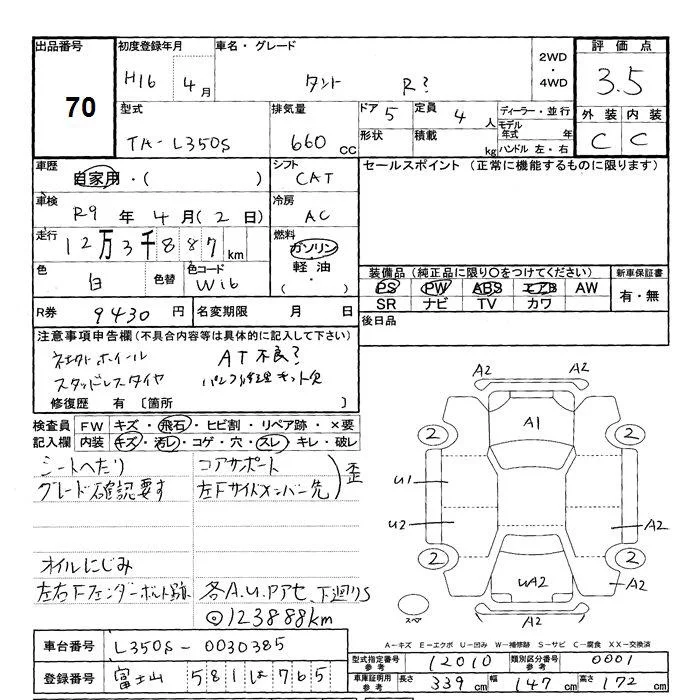 出品番号 70
初度登録年月 H16 4月
車名・グレード タント R?
2WD・4WD
評価点 3.5
外装 内装
C C
型式 TA-L350S
排気量 660 CC
ドア 5
定員 4人
形状 積載 kg
ディーラー・並行
モデル年式 年
ハンドル 左・右
車歴 自家用・( )
シフト CAT
セールスポイント (正常に機能するものに限ります)
車検 R9年4月(2日)
冷房 AC
走行 12万3千887km
燃料 ガソリン・軽油・( )
色 白 色替
色コード W16
装備品 (純正品に限り○をつけてください)
PS PW ABS エアB AW
SR ナビ TV カワ
新車保証書 有・無
R券 9430円
名変期限 月 日
後日品
注意事項申告欄(不具合内容等は具体的に記入して下さい)
社外ホイール AT不良?
スタッドレスタイヤ パンク修理キット欠
修復歴 有 [箇所 ]
検査員記入欄
FW キズ・飛石・ヒビ割・リペア跡・×要
内装 キズ・汚レ・コゲ・穴・スレ・キレ・破レ
シートへたり コアサポート
グレード確認要す 左Fサイドメンバー先 歪
オイルにじみ
左右Fフェンダーボルト跡 各A.U.Pアセ 下廻りS
◎123888km
A2 A2
A1
2 2
U1
U2 A2
2 2
UA2 A2
A2 A2
スペア
A-キズ E-エクボ U-凹み W-補修跡 S-サビ C-腐食 XX-交換済
車台番号 L350S-0030385
登録番号 富士山 581 は 765
型式指定番号参考 12010
類別区分番号参考 0001
車庫証明用参考 長さ 339cm 幅 147cm 高さ 172cm